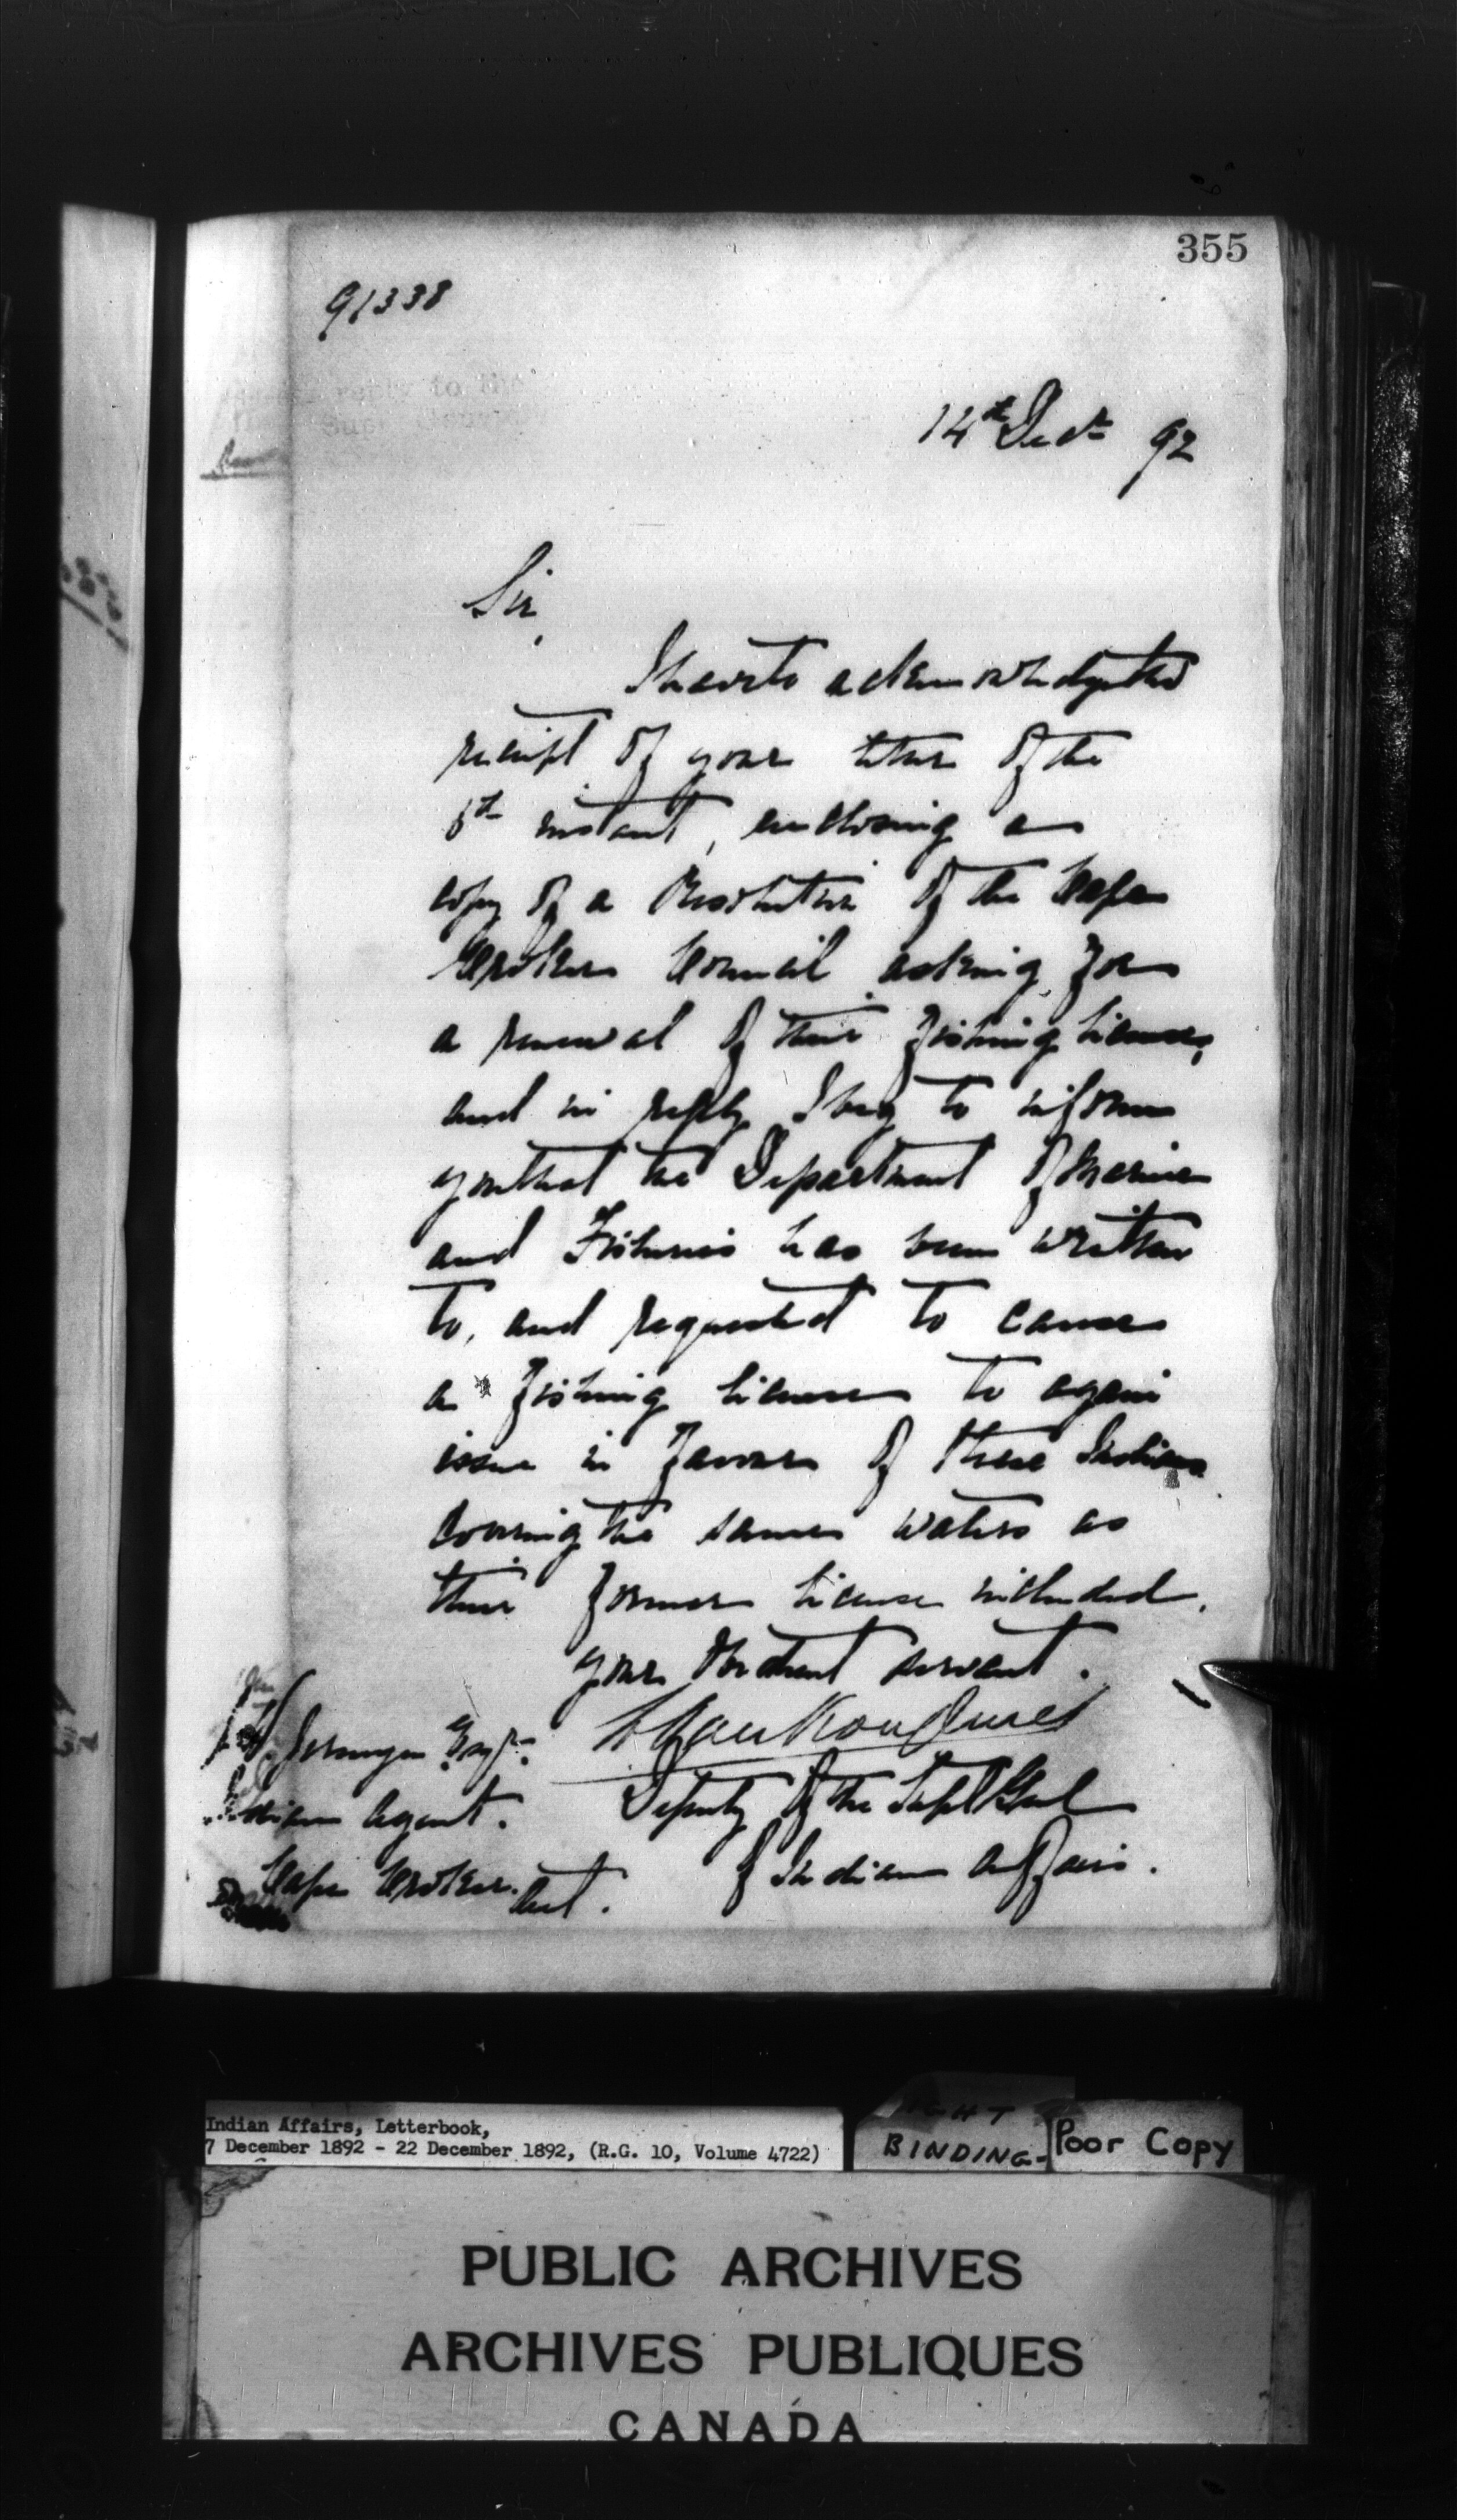 355
91338
14th Decr 92
Sir,
I have to acknowledge the
receipt of your letter of the
6th instant, enclosing a
copy of a Resolution of the Cape
Croker Council asking for
a renewal of their fishing license,
and in reply I beg to inform
you that the Department of Marine
and Fisheries has been written
to, and requested to cause
a fishing license to again
issue in favour of these Indians
covering the same waters as
their former license included.
Your obedient servant.
L Vankoughnet
Deputy of the Supt Genl
of Indian Affairs.
Jermyn Esqr
Indian Agent.
Cape Croker.
Ont.
Indian Affairs, Letterbook,
7 December 1892 - 22 December 1892, (R.G. 10, Volume 4722)
BINDING-
Poor Copy
PUBLIC ARCHIVES
ARCHIVES PUBLIQUES
CANADA